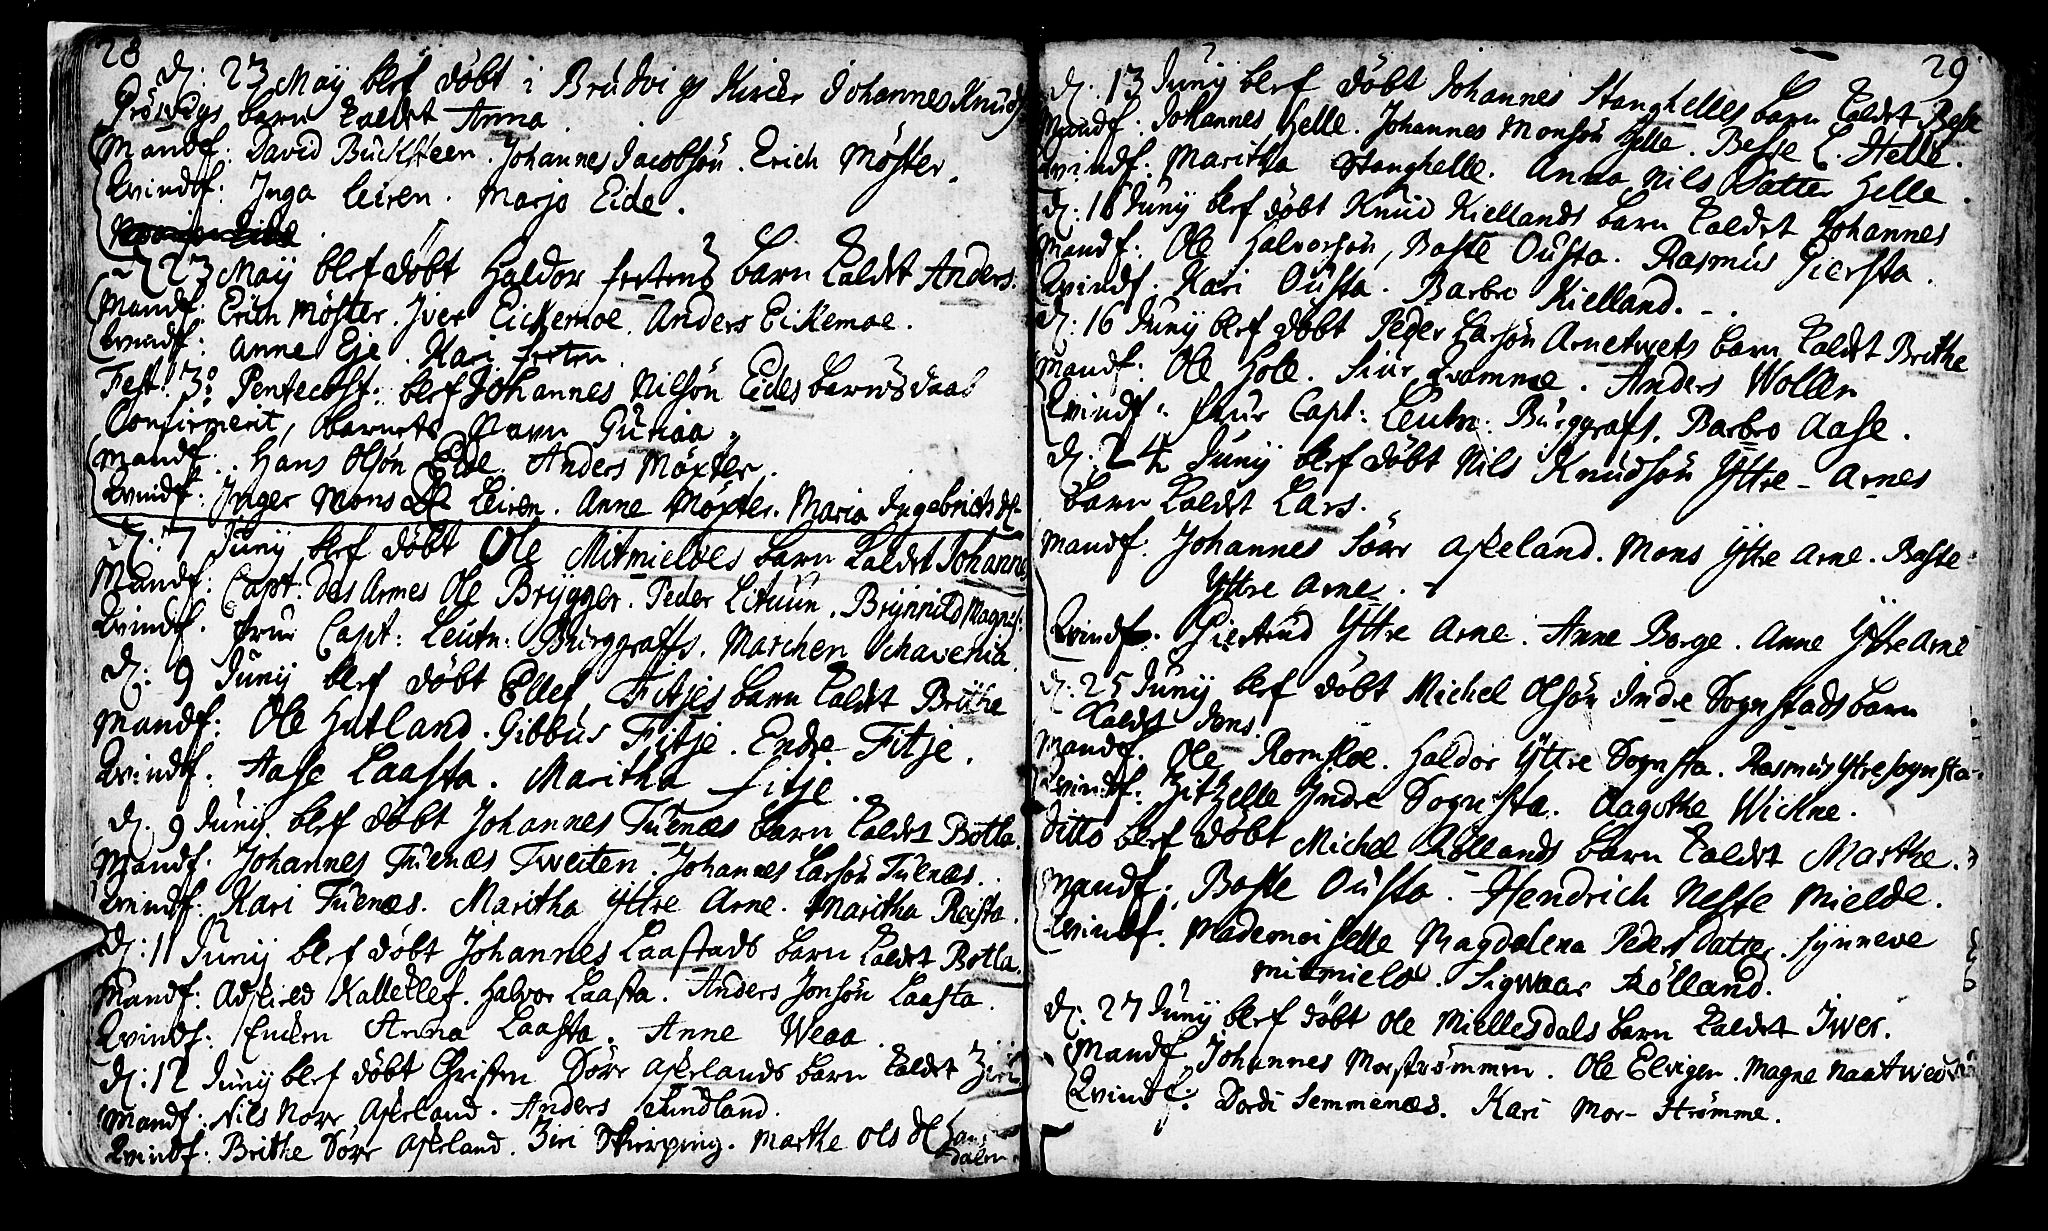 28
d: 23 May blef döbt i Brudvigs Kircke Johannes Knuds
barn kaldet Anna.
Mandf: David Buchsteen. Johannes Jacobsön. Erich Möster.
Qvindf: Inga Leiren. Marjo Eide.
d 23 May blef döbt Haldor barn kaldet Anders.
Mandf: Erich Möster. Iver Eickemoe. Anders Eikemoe.
Qvindf: Anne Eje. Kari
Fest: 3º Pentecost: blef Johannes Nilsön Eides barns daab
Confirmerit, barnets Navn Guriaa.
Mandf: Hans Olsön Eide. Anders Möxter.
Qvindf: Inger Mons dl Leiren. Anne Möxter. Maria Ingebrichs dl
d: 7 Junij blef döbt Ole Mitmieldes barn kaldet Johanne
Mandf: Capt: des Armes Ole Brygger. Peder Lituun. Brynnild Magnes:
Qvindf. Frue Capt: Leutn: Burggrafs. Marchen Schavenia.
d: 9 Junij blef döbt Ellef Fitjes barn kaldet Brithe
Mandf: Ole Hatland. Gibbus Fitje. Endre Fitje.
Qvindf. Aase Laasta. Maritha Fitje.
d. 9 Junij. blef döbt Johannes Tuenæs barn kaldet Botla.
Mandf: Johannes Tuenæs Tweiten. Johannes Larsön Tuenæs.
Qvindf: Kari Tuenæs. Maritha Yttre Arne. Maritha Reista.
d: 11 Junij blef döbt Johannes Laastads barn kaldet Botla.
Mandf: Kalleklef. Halvor Laasta. Anders Jonsön Laasta.
Qvindf: Enken Anna Laasta. Anne Weaa.
d: 12 Junij blef döbt Christen Söre Askelands barn kaldet Ziri
Mandf: Nils Norr Askeland. Anders Sundland.
Qvindf: Brithe Sörr Askeland. Ziri Skierping. Marthe Ols dl
29
d. 13 Junij blef döbt Johannes Stanghelles barn kaldet Besse
Mandf: Johannes Helle. Johannes Monsön Helle. Besse L. Helle.
Qvindf: Maritha Stanghelle. Anna Nils Datter Helle.
d: 16 Junij blef döbt Knud Kiellands barn kaldet Johannes
Mandf: Ole Halvorsön, Baste Ousta. Rasmus Giersta.
Qvindf. Kari Ousta. Barbro Kielland.
d: 16 Junij blef döbt Peder Larsön Arnetwets barn kaldet Brithe
Mandf: Ole Hole. Siur Qvamme. Anders Wollen
Qvindf: Frue Capt: Leutn: Burggrafs. Barbro Aase.
d. 24 Junij blef döbt Nils Knudsön Yttre-Arnes
barn kaldet Lars.
Mandf. Johannes Sörr Askeland. Mons Yttre Arne. Baste
Yttre Arne.
Qvindf. Giertrud Yttre Arne. Anne Borge. Anne Yttre Arne
d: 25 Junij blef döbt Michel Olsön Indre Sognstads barn
kaldet Jens.
Mandf. Ole Romsloe. Haldor Yttre Sognsta. Rasmus Ytre Sognsta.
Qvindf: Zitzelle Indre Sognsta. Aagothe Wickne.
Ditto blef döbt Michel Röllands barn kaldet Marthe.
Mandf: Baste Ousta. Hendrich Neste Mielde.
Qvindf. Mademoiselle Magdalena Peders datter. Synneve
Mitmield. Sigwaar Rölland.
d: 27 Junij blef döbt Ole Miellesdals barn kaldet Iwer.
Mandf Johannes Morströmmen. Ole Elvigen. Magne
Qvindf: Dordi Semmenæs. Kari Mor-Strömme.